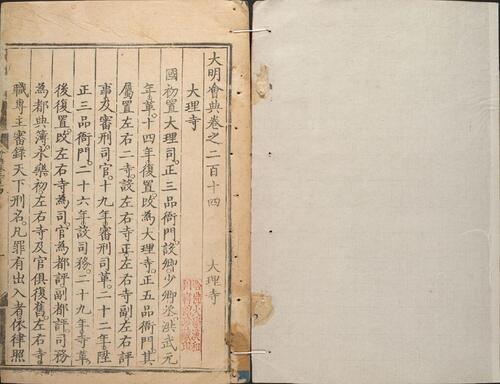 大明會典卷之二百十四 大理寺
大理寺
國初置大理司正三品衙門設卿少卿丞洪武元
年革十四年復置改為大理寺正五品衙門其
屬置左右二寺設左右寺正左右寺副左右評
事及審刑司官十九年審刑司革二十二年陞
正三品衙門二十六年設司務二十九年寺革
後復置改左右寺為司官為都評副都評司務
為都典簿永樂初左右寺及官俱復舊左右寺
職專主審錄天下刑名凡罪有出入者依律照